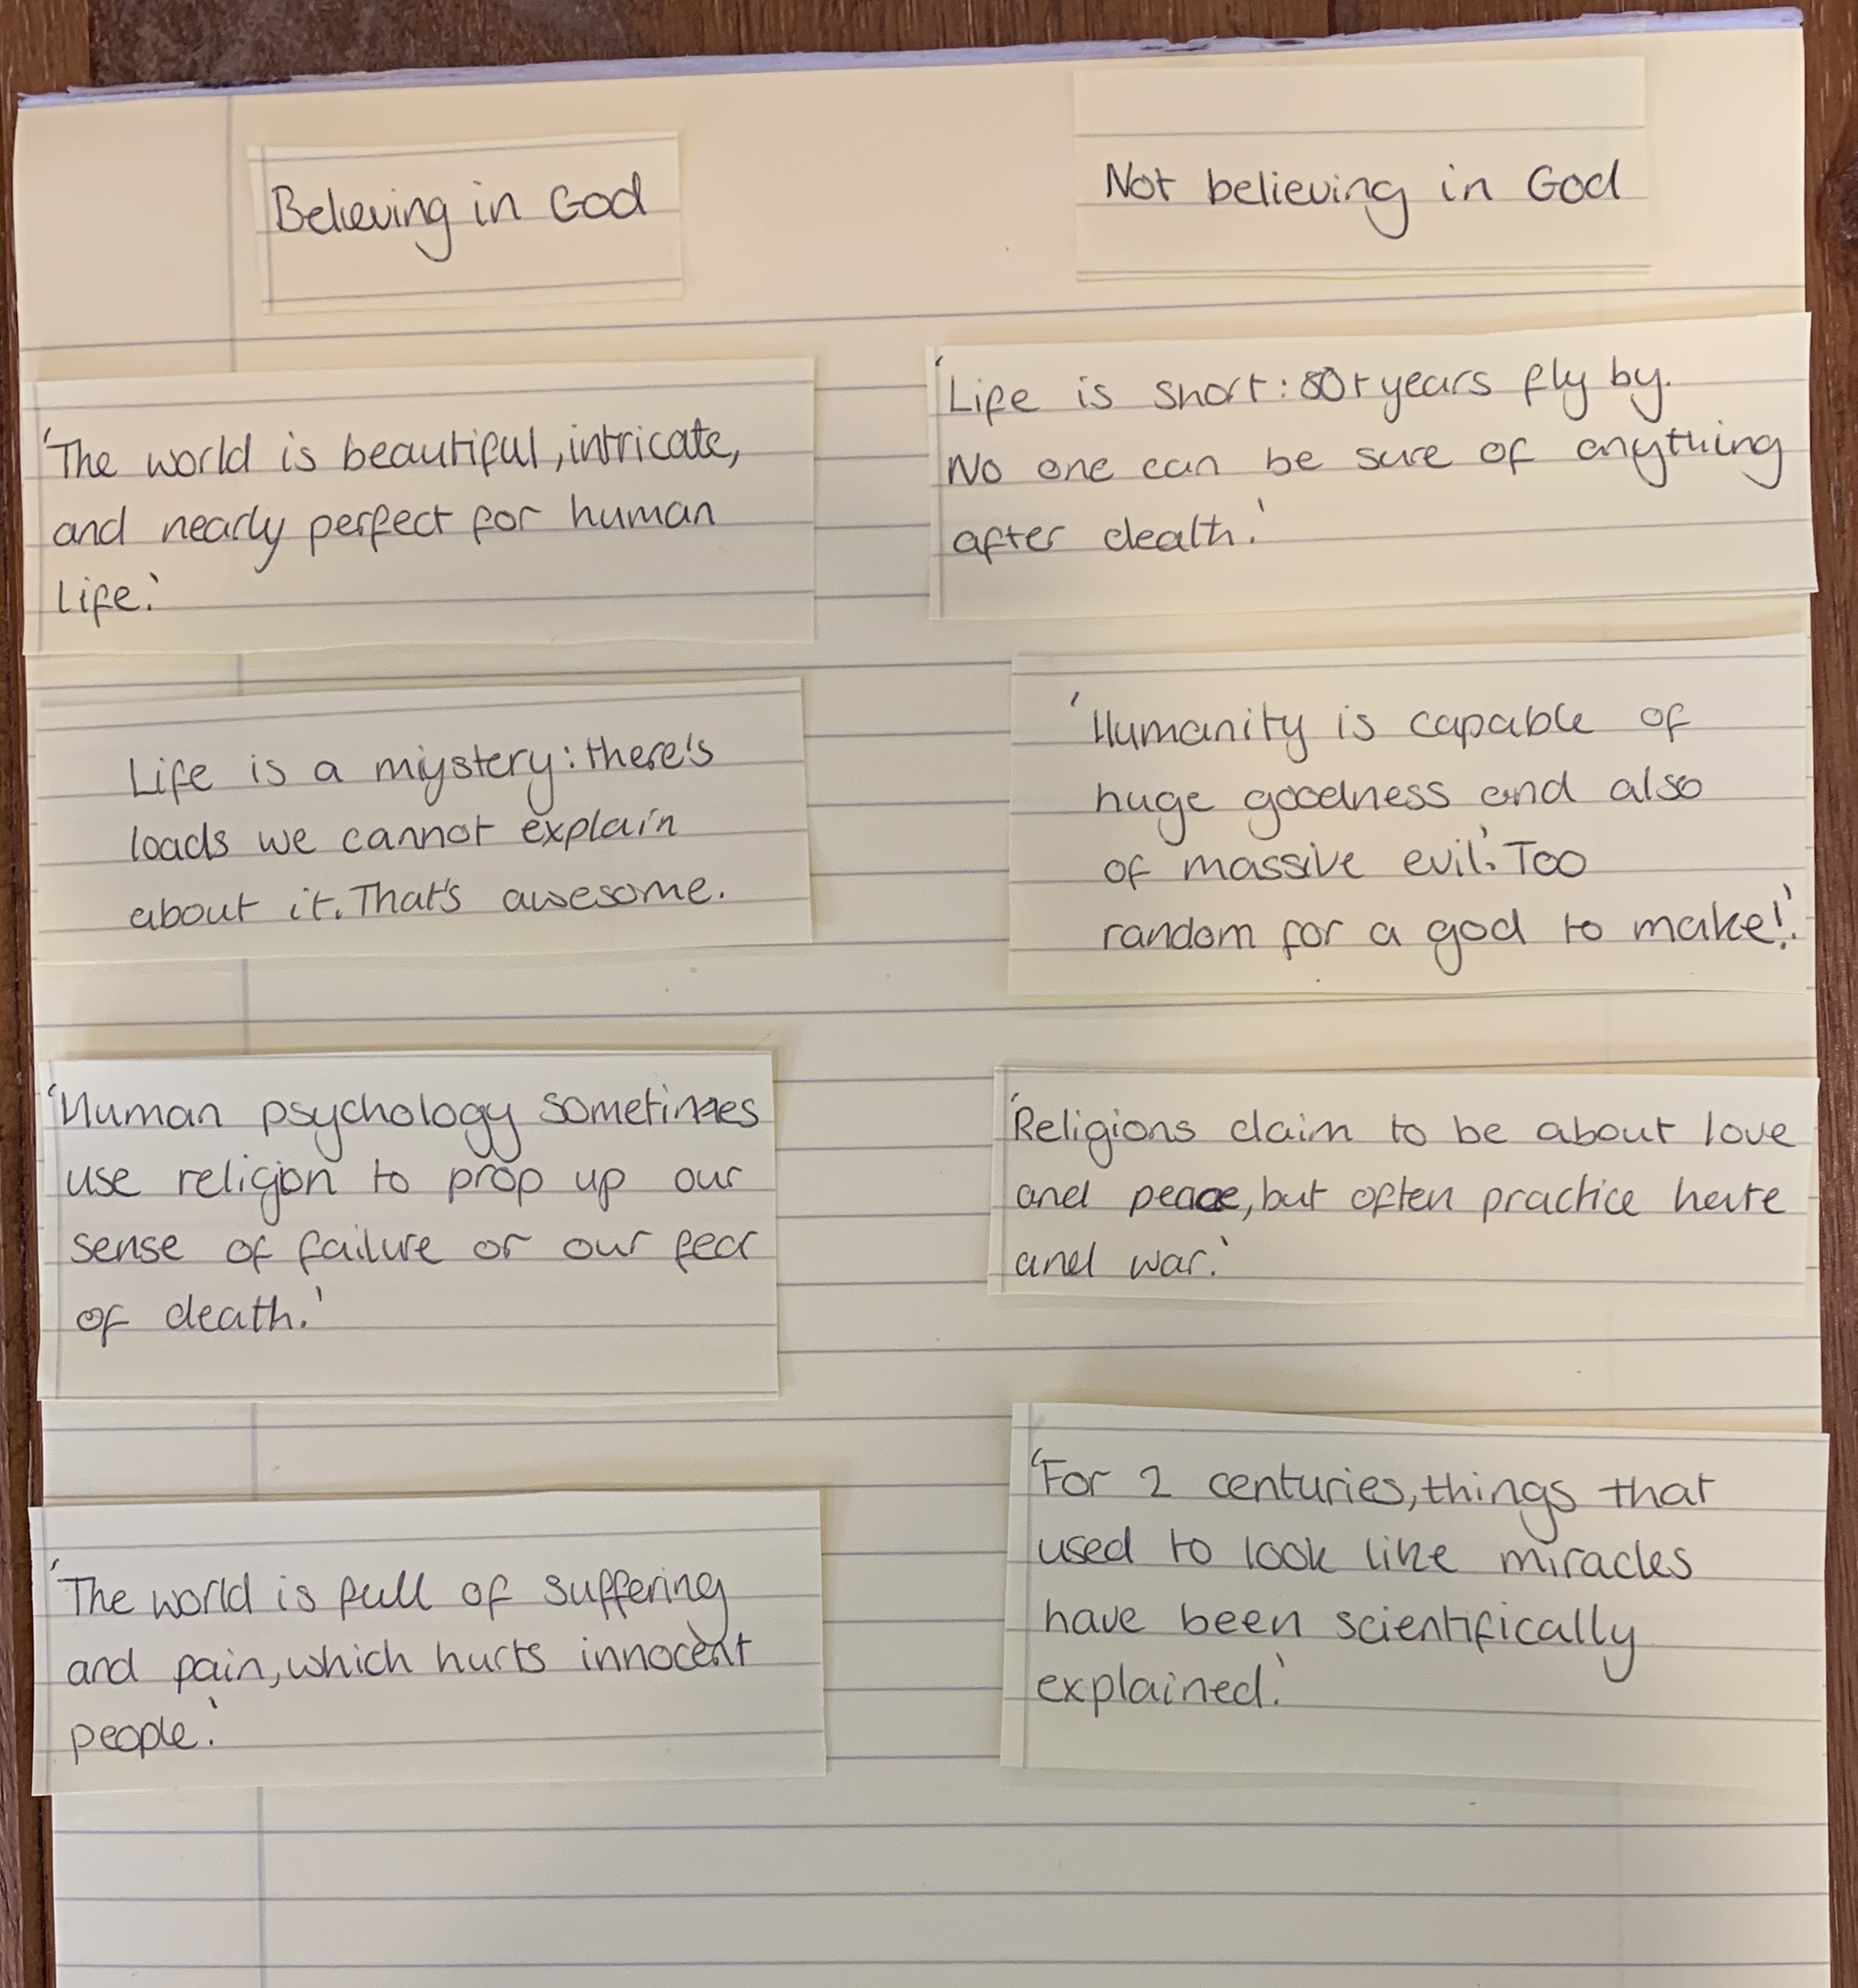 Believing in God
'The world is beautiful, intricate,
and nearly perfect for human
life.'
Life is a miystery: there's
loads we cannot explain
about it. That's awesome.
'Human psychology sometimes
use religion to prop up our
sense of failure or our fear
of death.'
'The world is full of suffering
and pain, which hurts innocent
people.'
Not believing in God
'Life is short: 80+ years fly by.
No one can be sure of anything
after death.'
'Humanity is capable of
huge goodness and also
of massive evil.' Too
random for a god to make!'.
'Religions claim to be about love
and peace, but often practice hate
and war.'
'For 2 centuries, things that
used to look like miracles
have been scientifically
explained.'